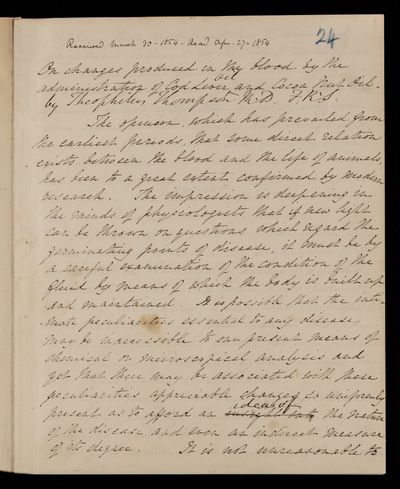 Received March 30 - 1854 - Read Apr. 27 - 1854
24
On changes produced in the blood by the
administration of Cod Liver Oil and Cocoa Nut Oil -
by Theophilus Thompson M.D. F.R.S.
The opinion, which has prevailed from
the earliest periods, that some direct relation
exists between the blood and the life of animals,
has been to a great extent confirmed by modern
research. The impression is deepening in
the minds of physiologists that if new light
can be thrown on questions which regard the
germinating points of disease, it must be by
a careful examination of the condition of the
fluid by means of which the body is built up
and maintained. It is possible that the inti-
mate peculiarities essential to any disease
may be inaccessible to our present means of
chemical or microscopical analysis and
yet that there may be associated with these
peculiarities appreciable changes so uniformly
present as to afford an idea of the nature
of the disease and even an indirect measure
of its degree. It is not unreasonable to